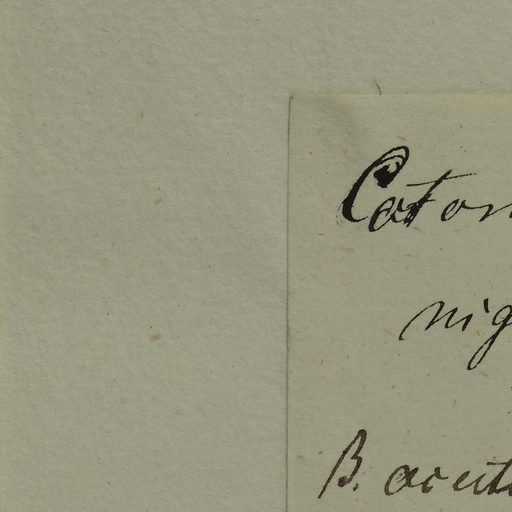 Coton
nig
β. acuti